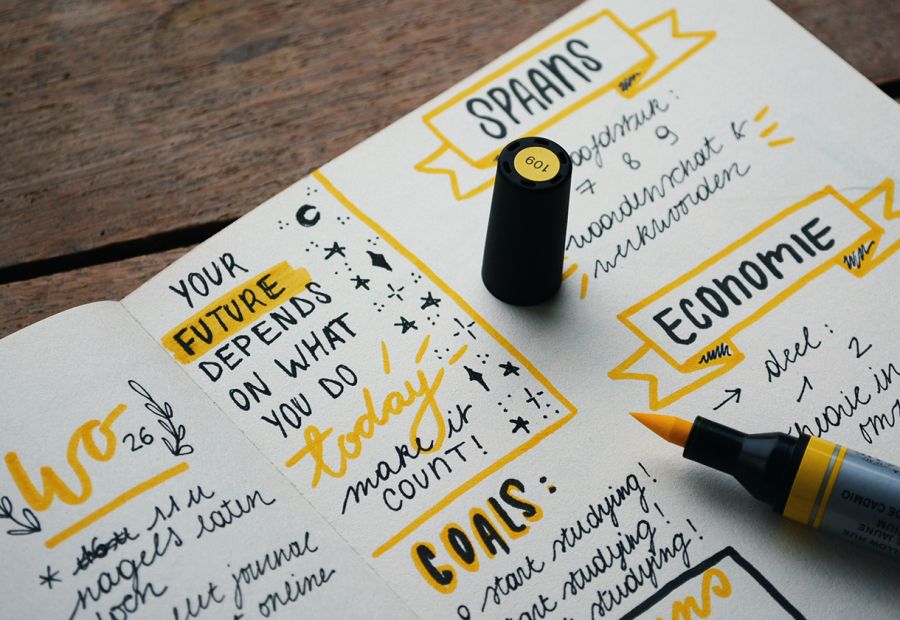 Wo
26
* 11 u
nagels laten
journal
online
YOUR
FUTURE
DEPENDS
ON WHAT
YOU DO
today
make it
COUNT!
GOALS:
start studying!
start studying!
studying!
SPAANS
oofdstuk:
7 8 9
woordenschat &
werkwoorden
ECONOMIE
→ deel:
1 2
theorie in
109